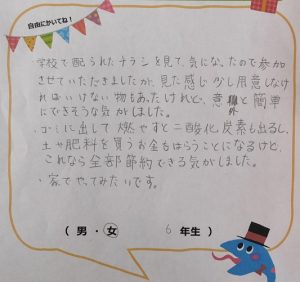 自由にかいてね!
・学校で配られたチラシを見て、気になったので参加
させていただきましたが、見た感じ少し用意しなけ
ればいけない物もあったけれど、意外と簡単
にできそうな気がしました。
・ゴミに出して燃やすと二酸化炭素も出るし、
土や肥料を買うお金もはらうことになるけど、
これなら全部節約できる気がしました。
・家でやってみたいです。
( 男・女 6 年生 )